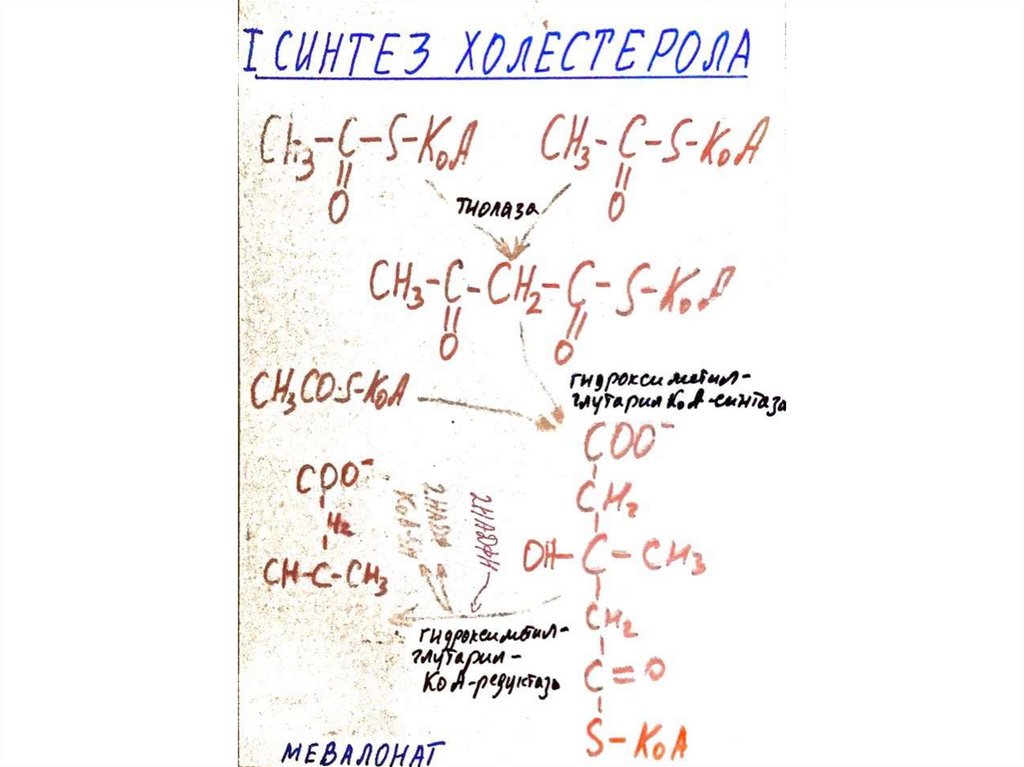 I СИНТЕЗ ХОЛЕСТЕРОЛА
CH3-C-S-KoA CH3-C-S-KoA
O O
ТИОЛАЗА
CH3-C-CH2-C-S-KoA
O O
CH3CO-S-KoA
гидроксиметил-
глутарил КоА-синтаза
COO⁻
CH2
OH-C-CH3
CH2
C=O
S-KoA
COO⁻
H2
CH-C-CH3
KoA-SH
2НАДФ
2НАДФН
гидроксиметил-
глутарил-
КоА-редуктаза
МЕВАЛОНАТ